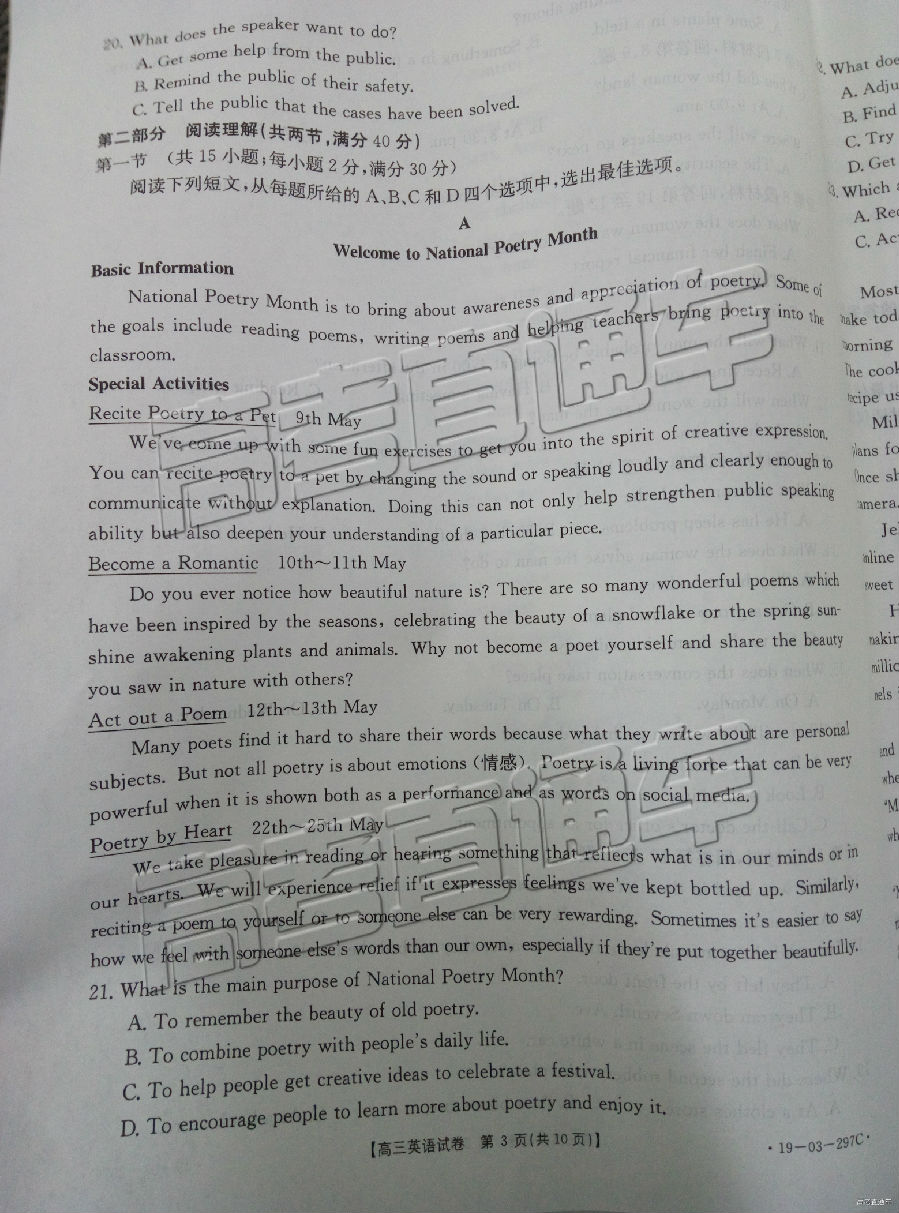 20. What does the speaker want to do?
A. Get some help from the public.
B. Remind the public of their safety.
C. Tell the public that the cases have been solved.
第二部分 阅读理解(共两节,满分 40 分)
第一节 (共 15 小题;每小题 2 分,满分 30 分)
阅读下列短文,从每题所给的 A、B、C 和 D 四个选项中,选出最佳选项。
A
Welcome to National Poetry Month
Basic Information
National Poetry Month is to bring about awareness and appreciation of poetry. Some of
the goals include reading poems, writing poems and helping teachers bring poetry into the
classroom.
Special Activities
Recite Poetry to a Pet 9th May
We've come up with some fun exercises to get you into the spirit of creative expression.
You can recite poetry to a pet by changing the sound or speaking loudly and clearly enough to
communicate without explanation. Doing this can not only help strengthen public speaking
ability but also deepen your understanding of a particular piece.
Become a Romantic 10th~11th May
Do you ever notice how beautiful nature is? There are so many wonderful poems which
have been inspired by the seasons, celebrating the beauty of a snowflake or the spring sun-
shine awakening plants and animals. Why not become a poet yourself and share the beauty
you saw in nature with others?
Act out a Poem 12th~13th May
Many poets find it hard to share their words because what they write about are personal
subjects. But not all poetry is about emotions (情感). Poetry is a living force that can be very
powerful when it is shown both as a performance and as words on social media.
Poetry by Heart 22th~25th May
We take pleasure in reading or hearing something that reflects what is in our minds or in
our hearts. We will experience relief if it expresses feelings we've kept bottled up. Similarly,
reciting a poem to yourself or to someone else can be very rewarding. Sometimes it's easier to say
how we feel with someone else's words than our own, especially if they're put together beautifully.
21. What is the main purpose of National Poetry Month?
A. To remember the beauty of old poetry.
B. To combine poetry with people's daily life.
C. To help people get creative ideas to celebrate a festival.
D. To encourage people to learn more about poetry and enjoy it.
【高三英语试卷 第 3 页(共 10 页)】
·19-03-297C·
What doe
A. Adju
B. Find
C. Try
D. Get
Which
A. Rec
C. Ac
Most
make tod
morning
The cook
recipe us
Mil
plans fo
Once sh
amera.
Je
nline
sweet
H
makin
millic
nels
and
whe
"M
wh
高考直通车
高考直通车
高考直通车